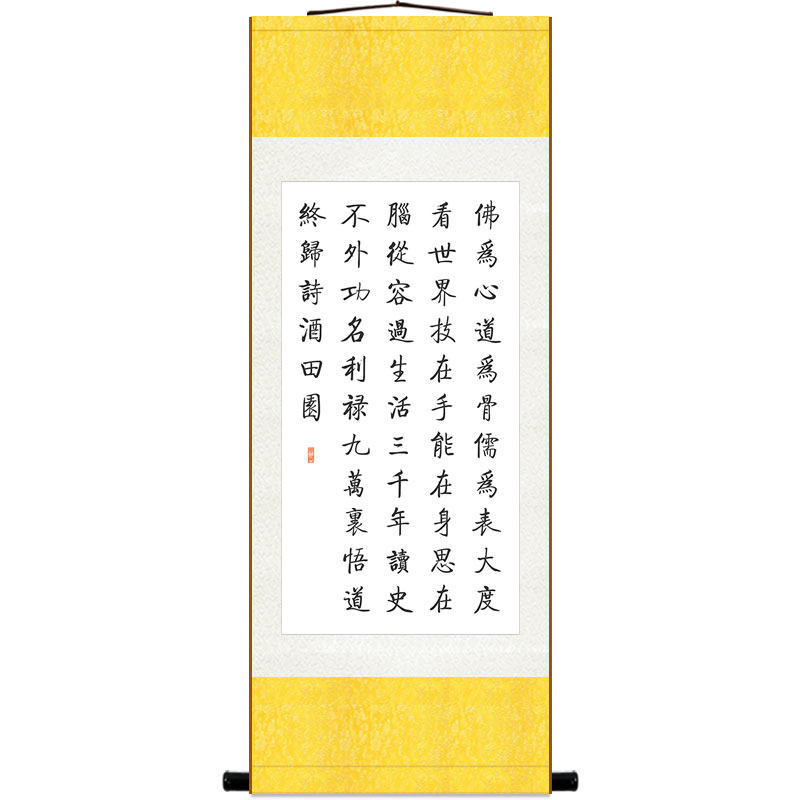 佛爲心道爲骨儒爲表大度
看世界技在手能在身思在
腦從容過生活三千年讀史
不外功名利禄九萬裏悟道
終歸詩酒田園